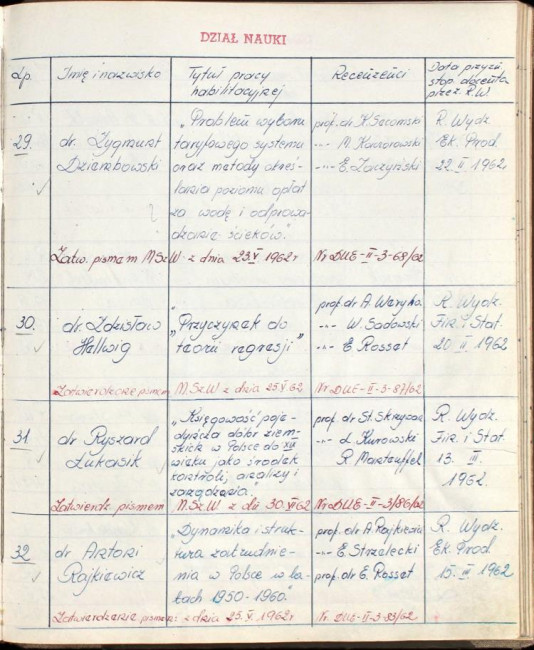 DZIAŁ NAUKI
Lp.
Imię i nazwisko
Tytuł pracy
habilitacyjnej
Recenzenci
Data przyzn.
stop. docenta
przez R.W.
29.
dr. Zygmunt
Dziembowski
„Problem wyboru
taryfowego systemu
oraz metody okreś-
lania poziomu opłat
za wodę i odprowa-
dzanie ścieków."
prof. dr. K. Secomski
-"-
-"- E. Zaczyński
R. Wydz.
Ek. Prod
22. II 1962
Zatw. pismem M.Sz.W. z dnia 23.V 1962 r
Nr DUE-II-3-68/62
30.
dr. Zdzisław
Hellwig
„Przyczynek do
teorii regresji"
prof. dr A. Weryha
-"- W. Sadowski
-"- E. Rosset
R. Wydz.
Fin. i Stat.
20 II. 1962
Zatwierdzone pismem M.Sz.W z dnia 25.V 62
Nr. DUE-II-3-87/62
31
dr Ryszard
Łukasik
„Księgowość poje-
dyńcza dóbr ziem-
skich w Polsce do XIX
wieku jako środek
kontroli, analizy i
zarządzania."
prof. dr. St. Skrzywan
-"- Kurowski
R. Manteuffel
R. Wydz.
Fin. i Stat.
13. III.
1962
Zatwierdz. pismem M.Sz.W z dn. 30.VI 62
Nr. DUE-II-3/86/62
32
dr Antoni
Rajkiewicz
„Dynamika i struk-
tura zatrudnie-
nia w Polsce w la-
tach 1950-1960."
prof. dr A. Rajkiewicz
-"- E. Strzelecki
prof. dr E. Rosset
R. Wydz.
Ek. Prod
15. III 1962
Zatwierdzone pismem z dnia 25.V. 1962 r
Nr. DUE-II-3-83/62